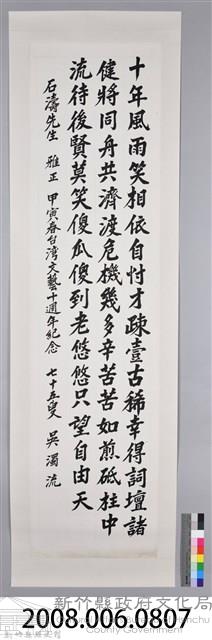 十年風雨笑相依自忖才疎壹古稀幸得詞壇諸
健將同舟共濟渡危機幾多辛苦苦如煎砥柱中
流待後賢莫笑傻瓜傻到老悠悠只望自由天
石濤先生 雅正 甲寅春台灣文藝十週年紀念 七十五叟 吳濁流
新竹縣政府文化局
County Government
2008.006.0807